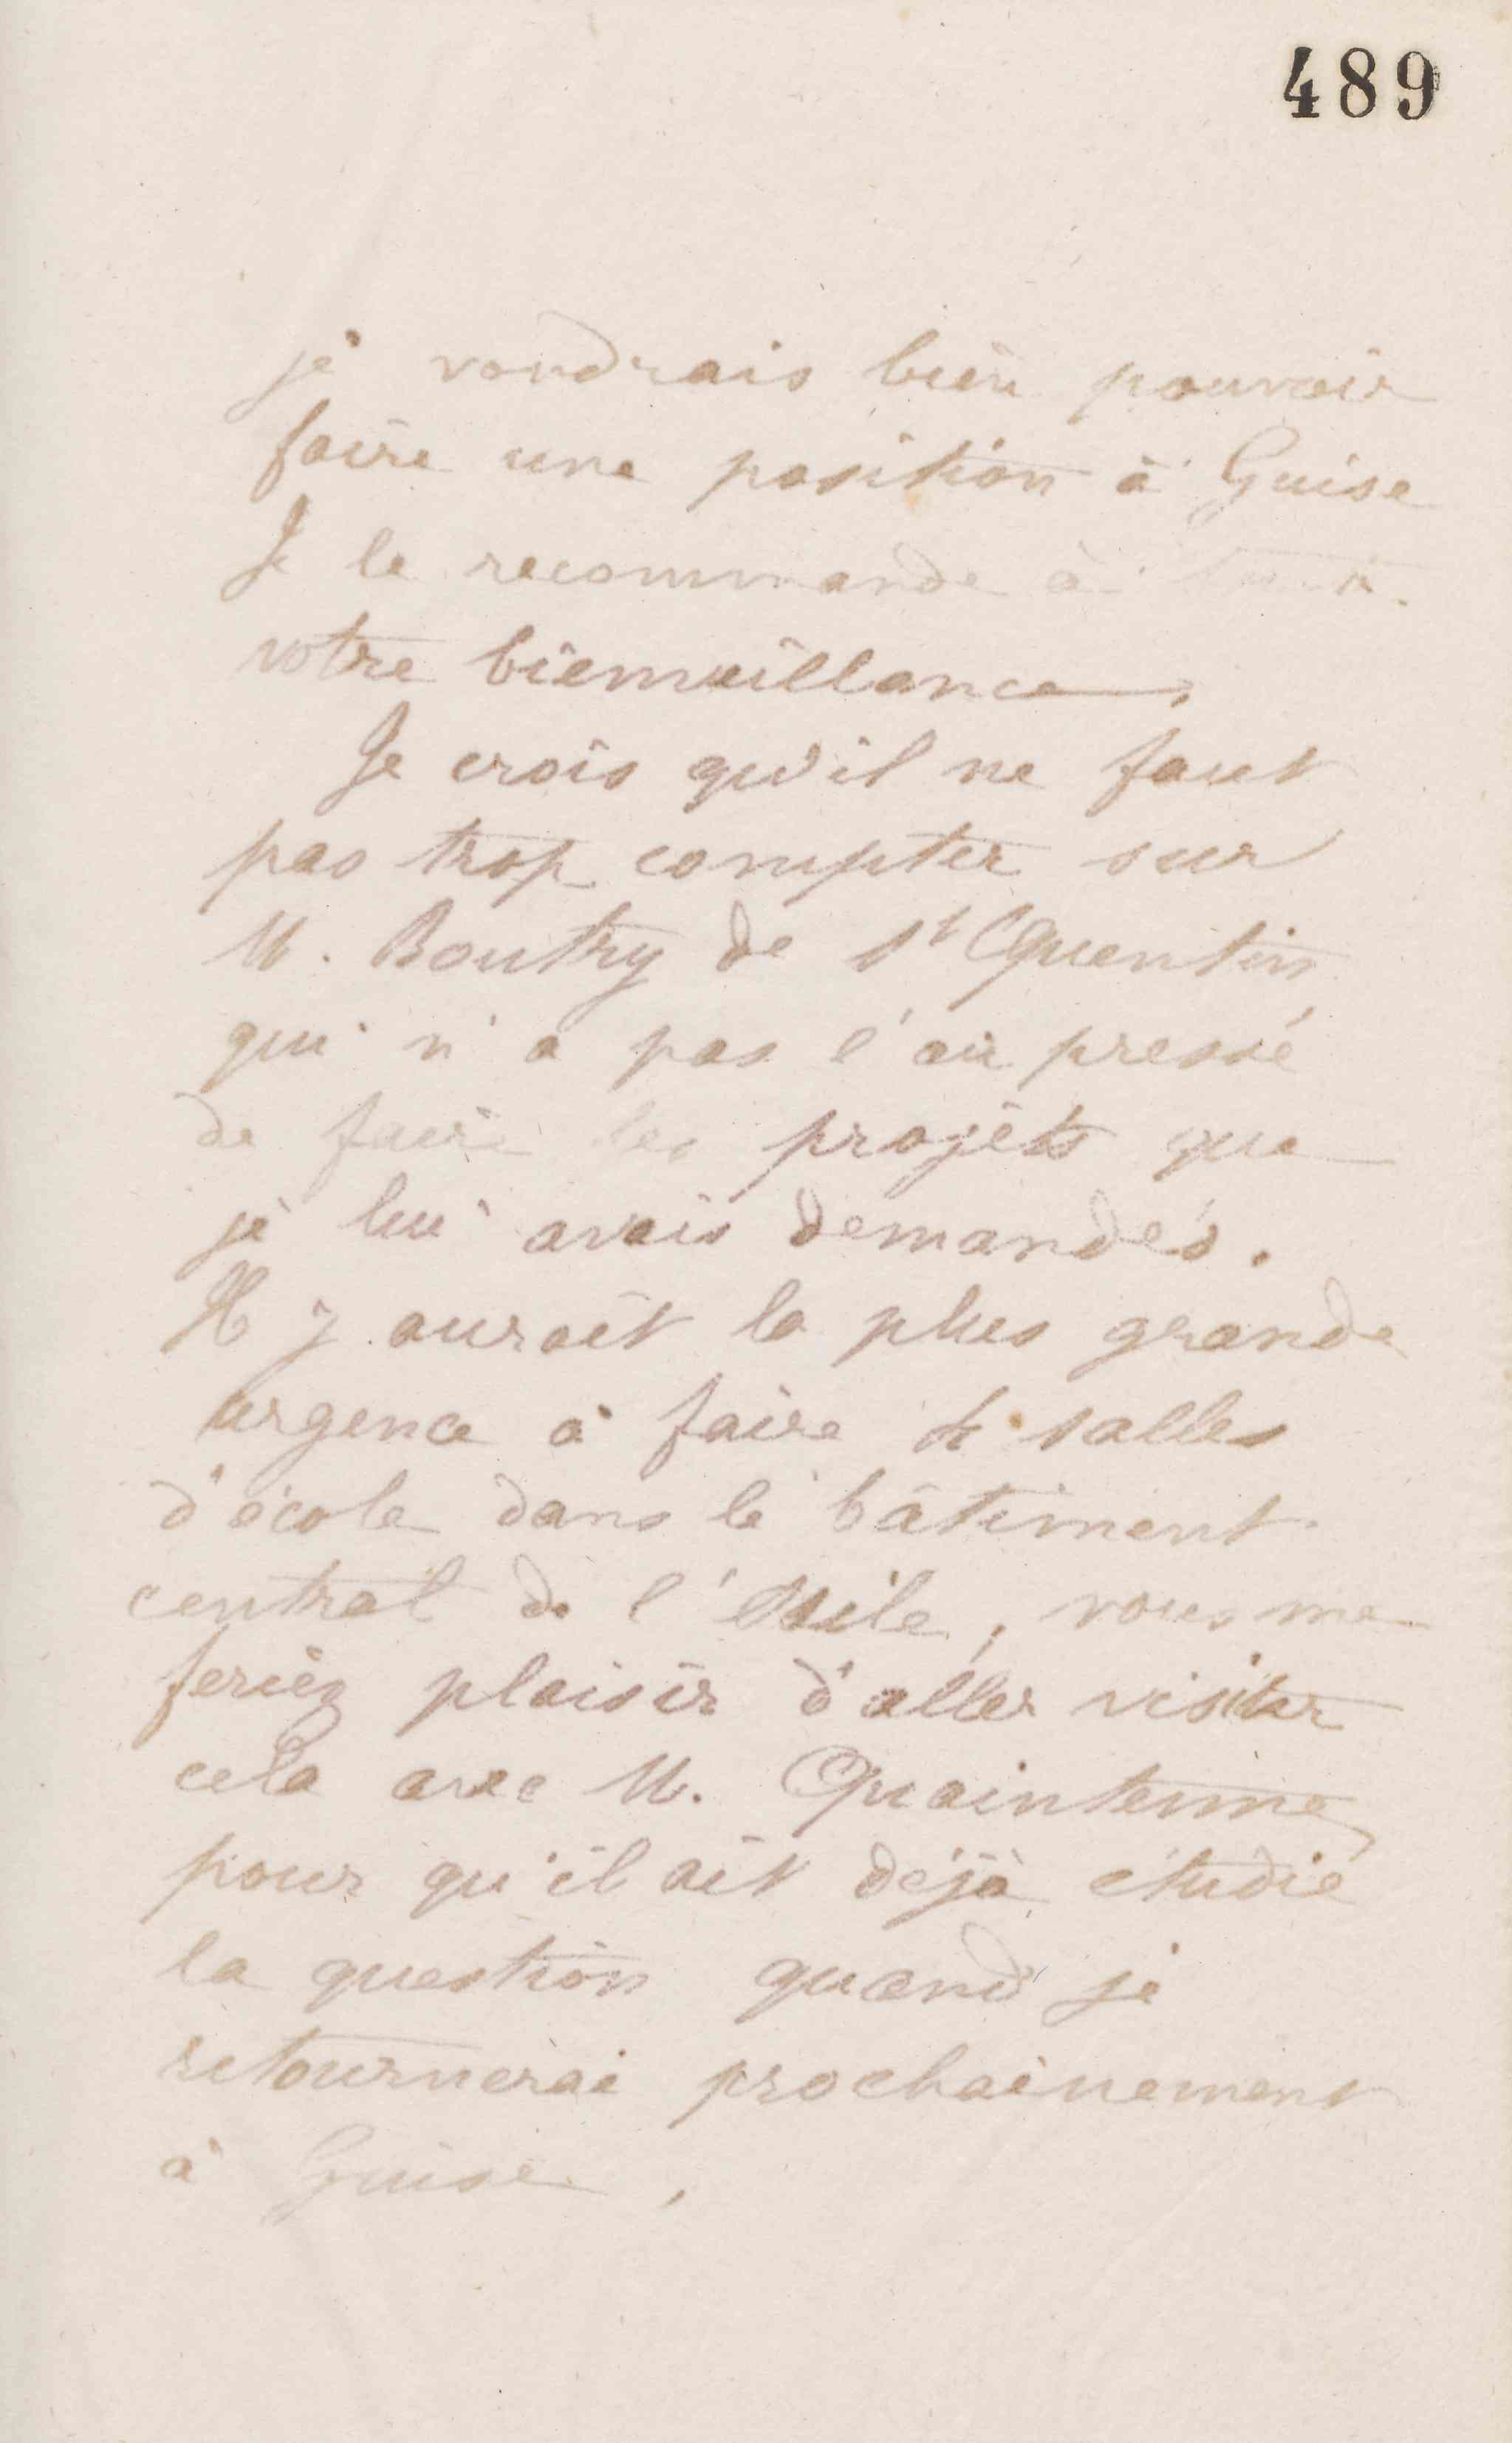 489
je voudrais bien pouvoir
faire une position à Guise
Je le recommande à toute
votre bienveillance.
Je crois qu'il ne faut
pas trop compter sur
M. Boutry de St Quentin
qui n'a pas l'air pressé
de faire les projets que
je lui avais demandés.
Il y aurait la plus grande
urgence à faire 4 salles
d'école dans le bâtiment
central de l'asile, vous me
feriez plaisir d'aller visiter
cela avec M. Quaintenne,
pour qu'il ait déjà étudié
la question quand je
retournerai prochainement
à Guise.